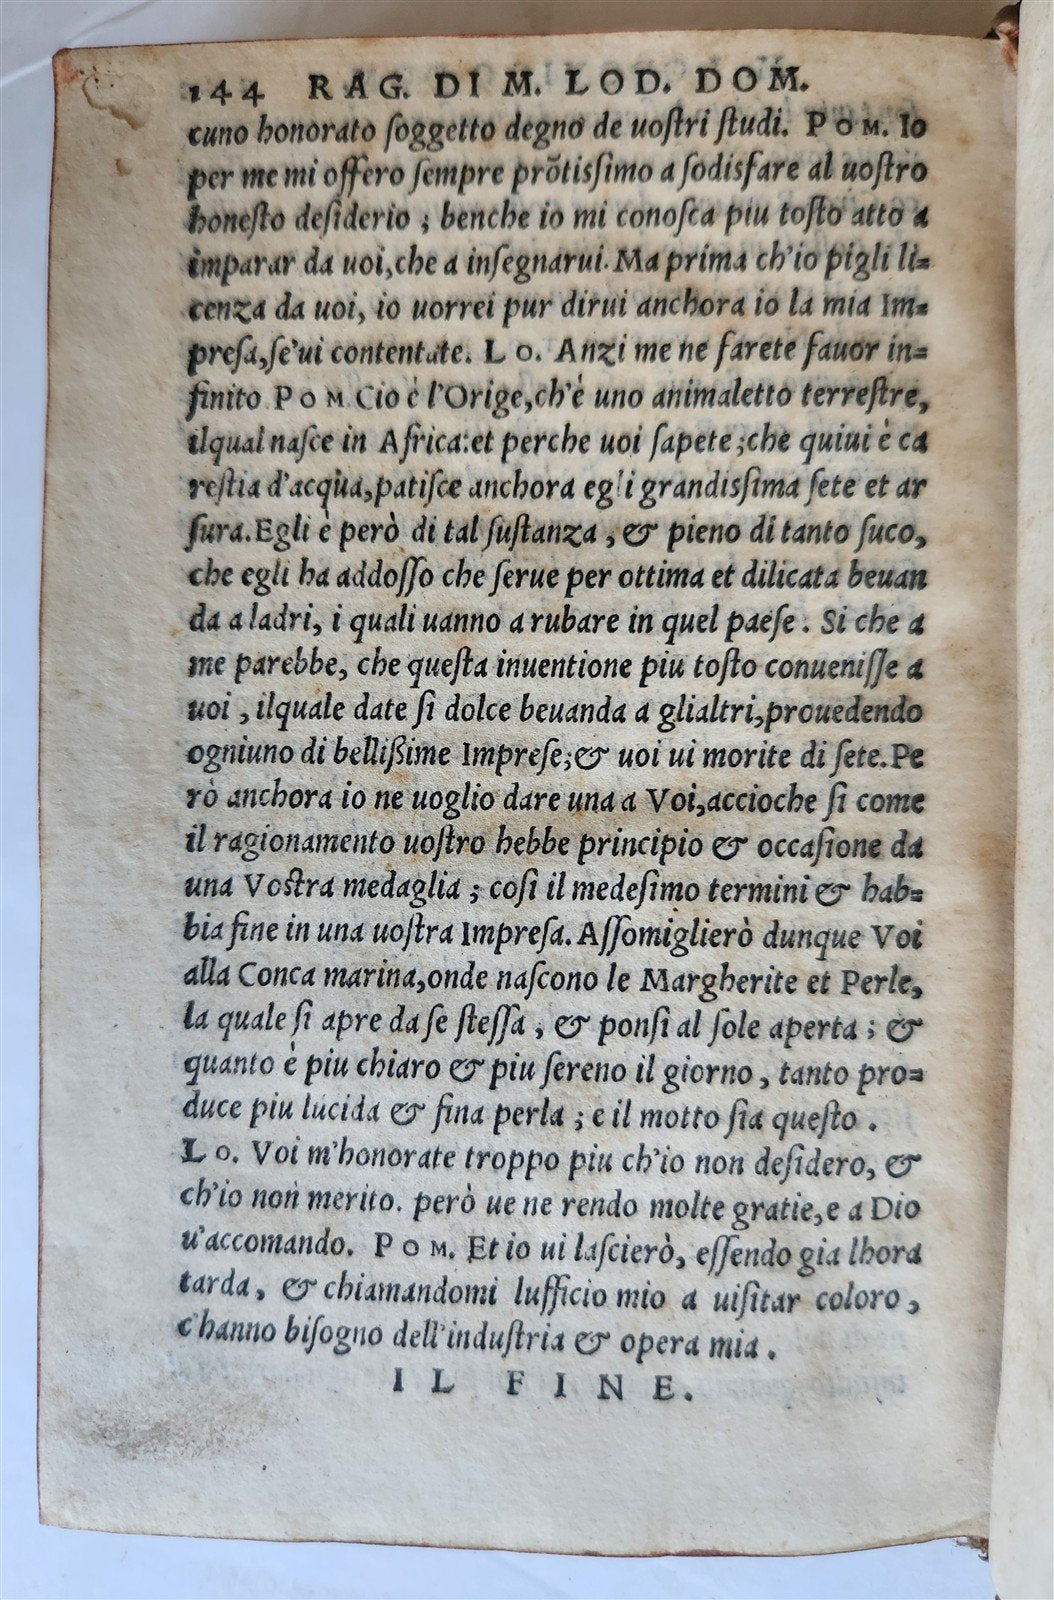 144 RAG. DI M. LOD. DOM.
cuno honorato ſoggetto degno de uoſtri ſtudi. POM. Io
per me mi offero ſempre prõtiſſimo a ſodisfare al uoſtro
honeſto deſiderio ; benche io mi conoſca piu toſto atto a
imparar da uoi,che a inſegnarui. Ma prima ch'io pigli li=
cenza da uoi, io uorrei pur dirui anchora io la mia Im=
preſa,ſe'ui contentate. LO. Anzi me ne farete fauor in=
finito POM Cio è l'Orige,ch'è uno animaletto terreſtre,
ilqual naſce in Africa:et perche uoi ſapete ;che quiui è ca
reſtia d'acqua,patiſce anchora egli grandiſſima ſete et ar
ſura.Egli è però di tal ſuſtanza , & pieno di tanto ſuco,
che egli ha addoſſo che ſerue per ottima et dilicata beuan
da a ladri, i quali uanno a rubare in quel paeſe . Si che a
me parebbe, che queſta inuentione piu toſto conueniſſe a
uoi , ilquale date ſi dolce beuanda a glialtri,prouedendo
ogniuno di bellißime Impreſe;& uoi ui morite di ſete.Pe
rò anchora io ne uoglio dare una a Voi,accioche ſi come
il ragionamento uoſtro hebbe principio & occaſione da
una Voſtra medaglia ; coſi il medeſimo termini & hab=
bia fine in una uoſtra Impreſa. Aſſomiglierò dunque Voi
alla Conca marina,onde naſcono le Margherite et Perle,
la quale ſi apre da ſe ſteſſa , & ponſi al ſole aperta ; &
quanto è piu chiaro & piu ſereno il giorno , tanto pro=
duce piu lucida & fina perla ; e il motto ſia queſto .
LO. Voi m'honorate troppo piu ch'io non deſidero, &
ch'io non merito. però ue ne rendo molte gratie,e a Dio
u'accomando. POM. Et io ui laſcierò, eſſendo gia lhora
tarda, & chiamandomi lufficio mio a uiſitar coloro ,
c'hanno biſogno dell'induſtria & opera mia .
IL FINE.